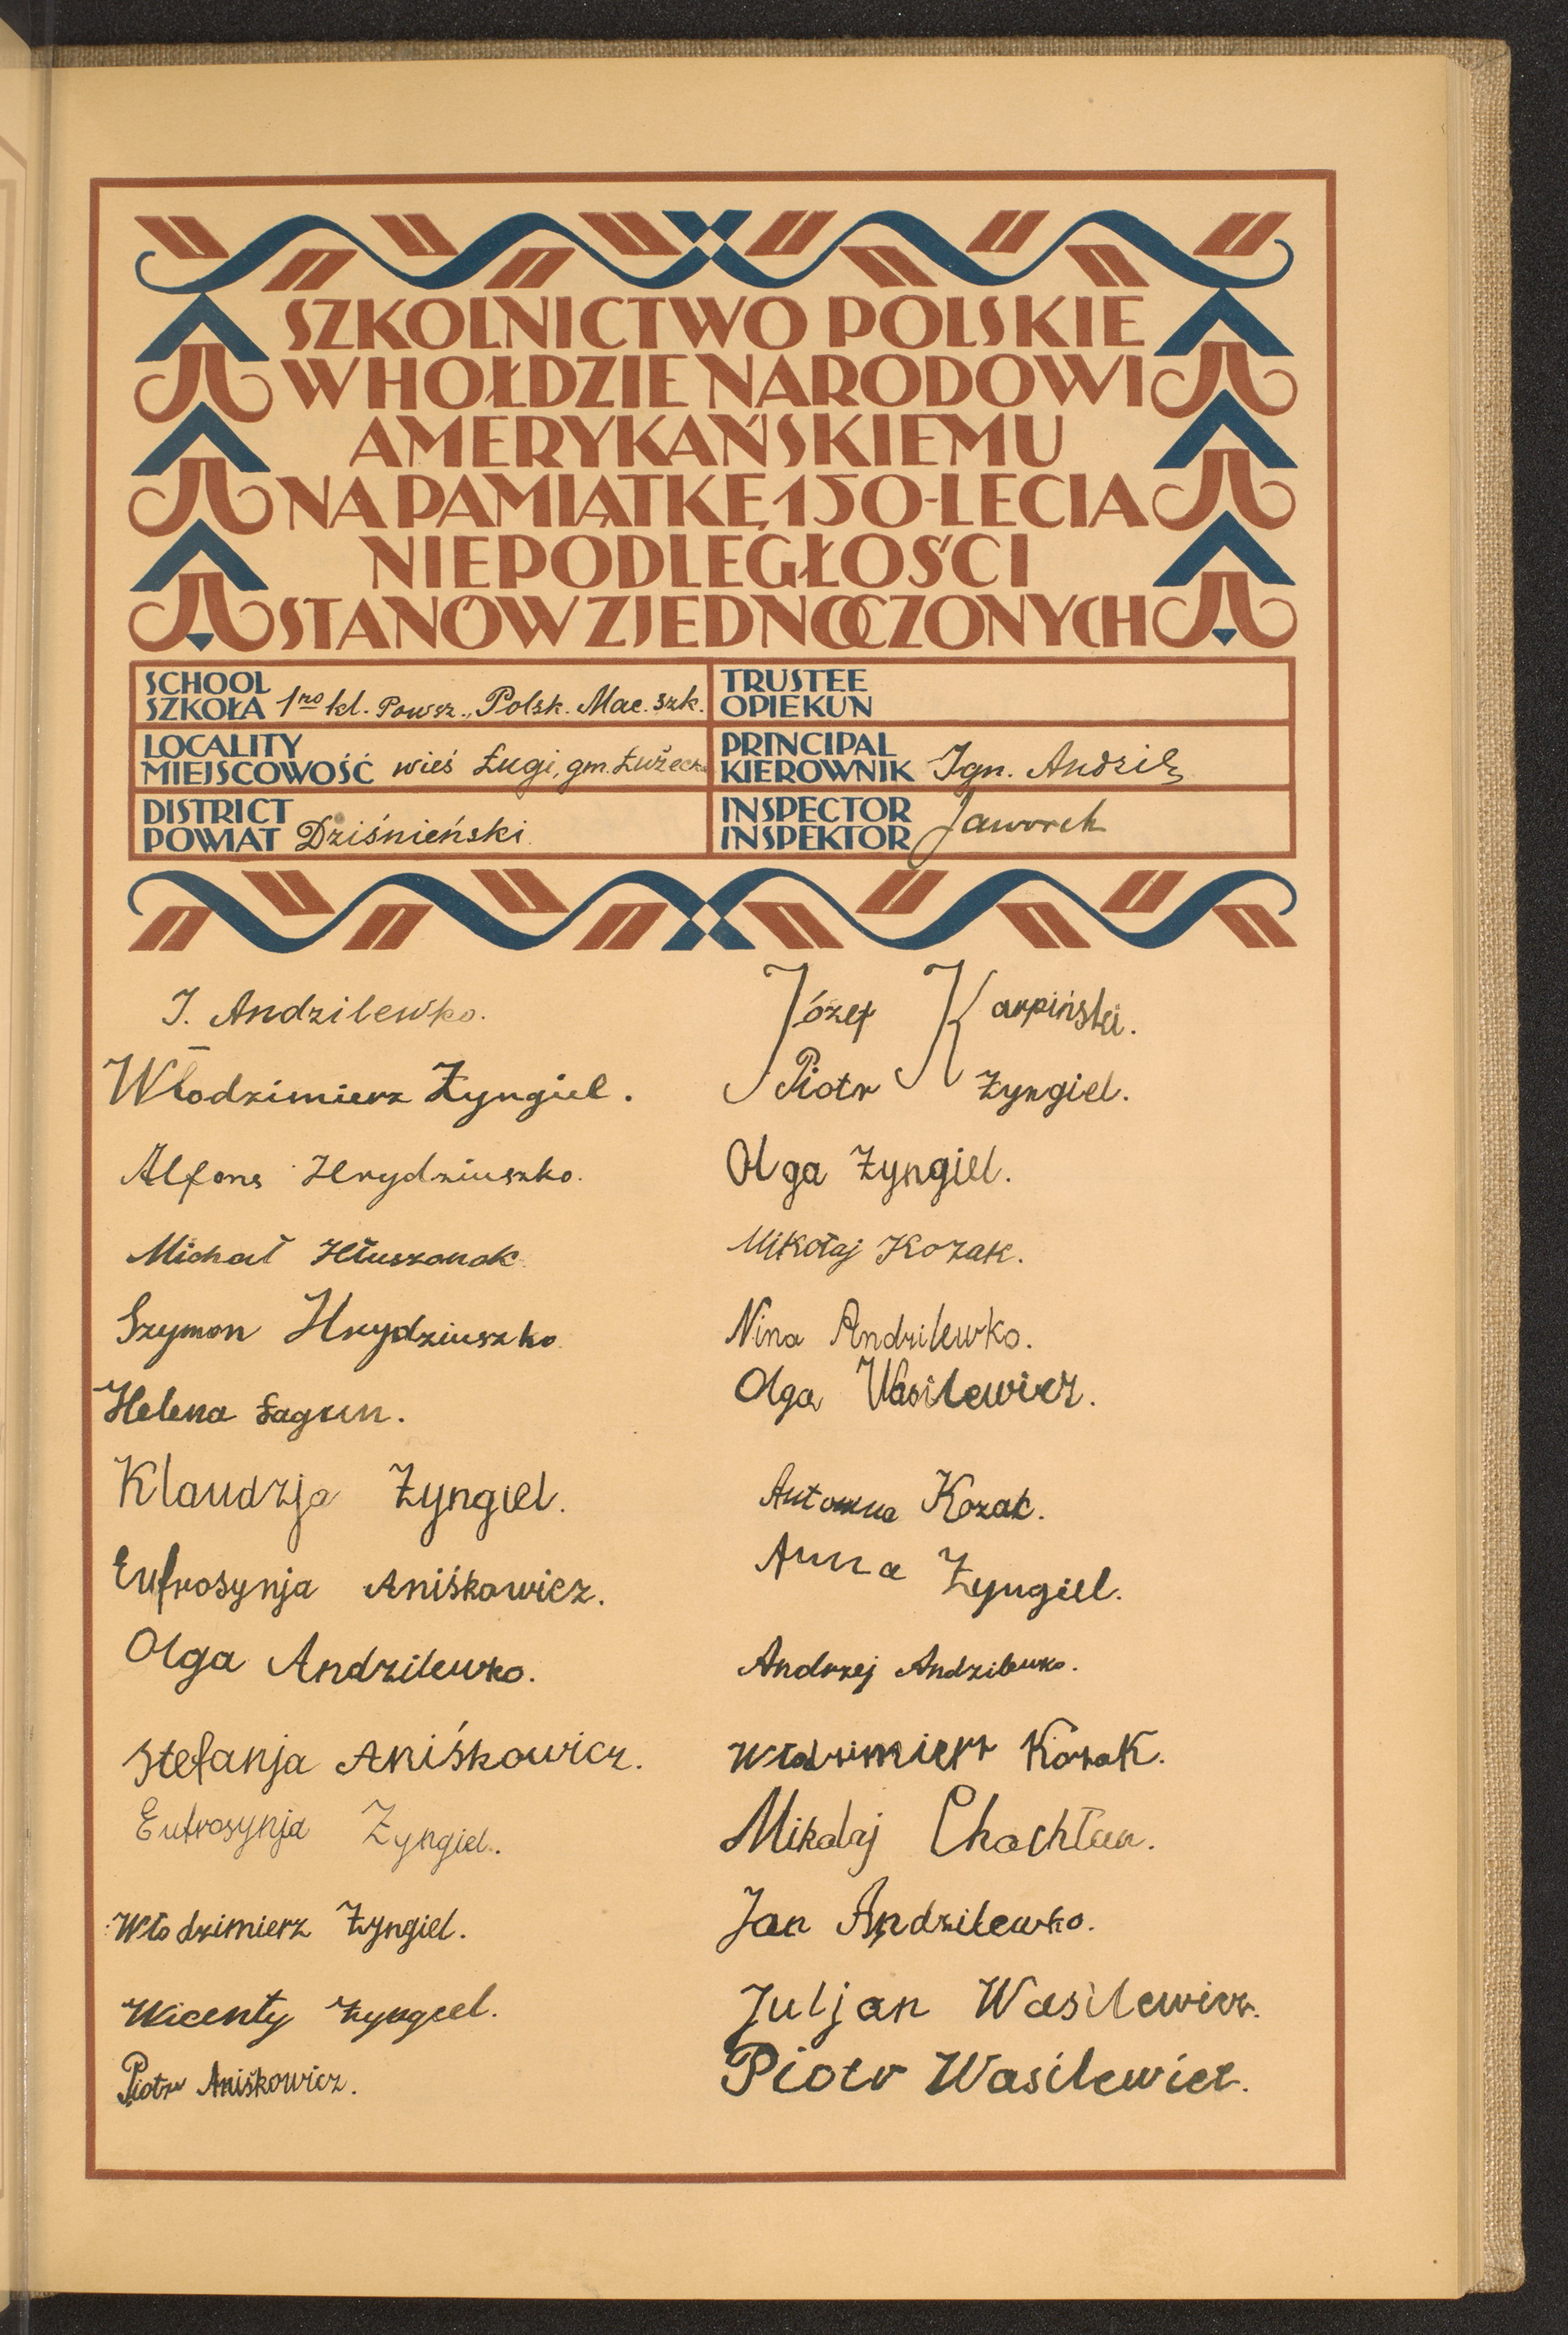 SZKOLNICTWO POLSKIE
W HOŁDZIE NARODOWI
AMERYKAŃSKIEMU
NA PAMIĄTKĘ 150-LECIA
NIEPODLEGŁOŚCI
STANÓW ZJEDNOCZONYCH
SCHOOL
SZKOŁA 1no kl. Powsz. „Polsk. Mac. szk.
TRUSTEE
OPIEKUN
LOCALITY
MIEJSCOWOŚĆ wieś Ługi, gm. Łużeck
PRINCIPAL
KIEROWNIK Ign. Andzil
DISTRICT
POWIAT Dziśnieński
INSPECTOR
INSPEKTOR Jaworek
I. Andzilewko.
Włodzimierz Żyngiel.
Alfons Hrydziuszko.
Michał Hłuszonok
Szymon Hrydziuszko
Helena Łagun.
Klaudzja Żyngiel.
Eufrosynja Aniśkowicz.
Olga Andzilewko.
Stefanja Aniśkowicz.
Eufrosynja Żyngiel.
Włodzimierz Żyngiel.
Wicenty Żyngiel.
Piotr Aniśkowicz.
Józef Karpiński.
Piotr Żyngiel.
Olga Żyngiel.
Mikołaj Kozak.
Nina Andzilewko.
Olga Wasilewicz.
Kozak.
Anna Żyngiel.
Andrzej Andzilewko.
Włodzimierz Kozak.
Mikolaj
Jan Andzilewko.
Juljan Wasilewicz.
Piotr Wasilewicz.